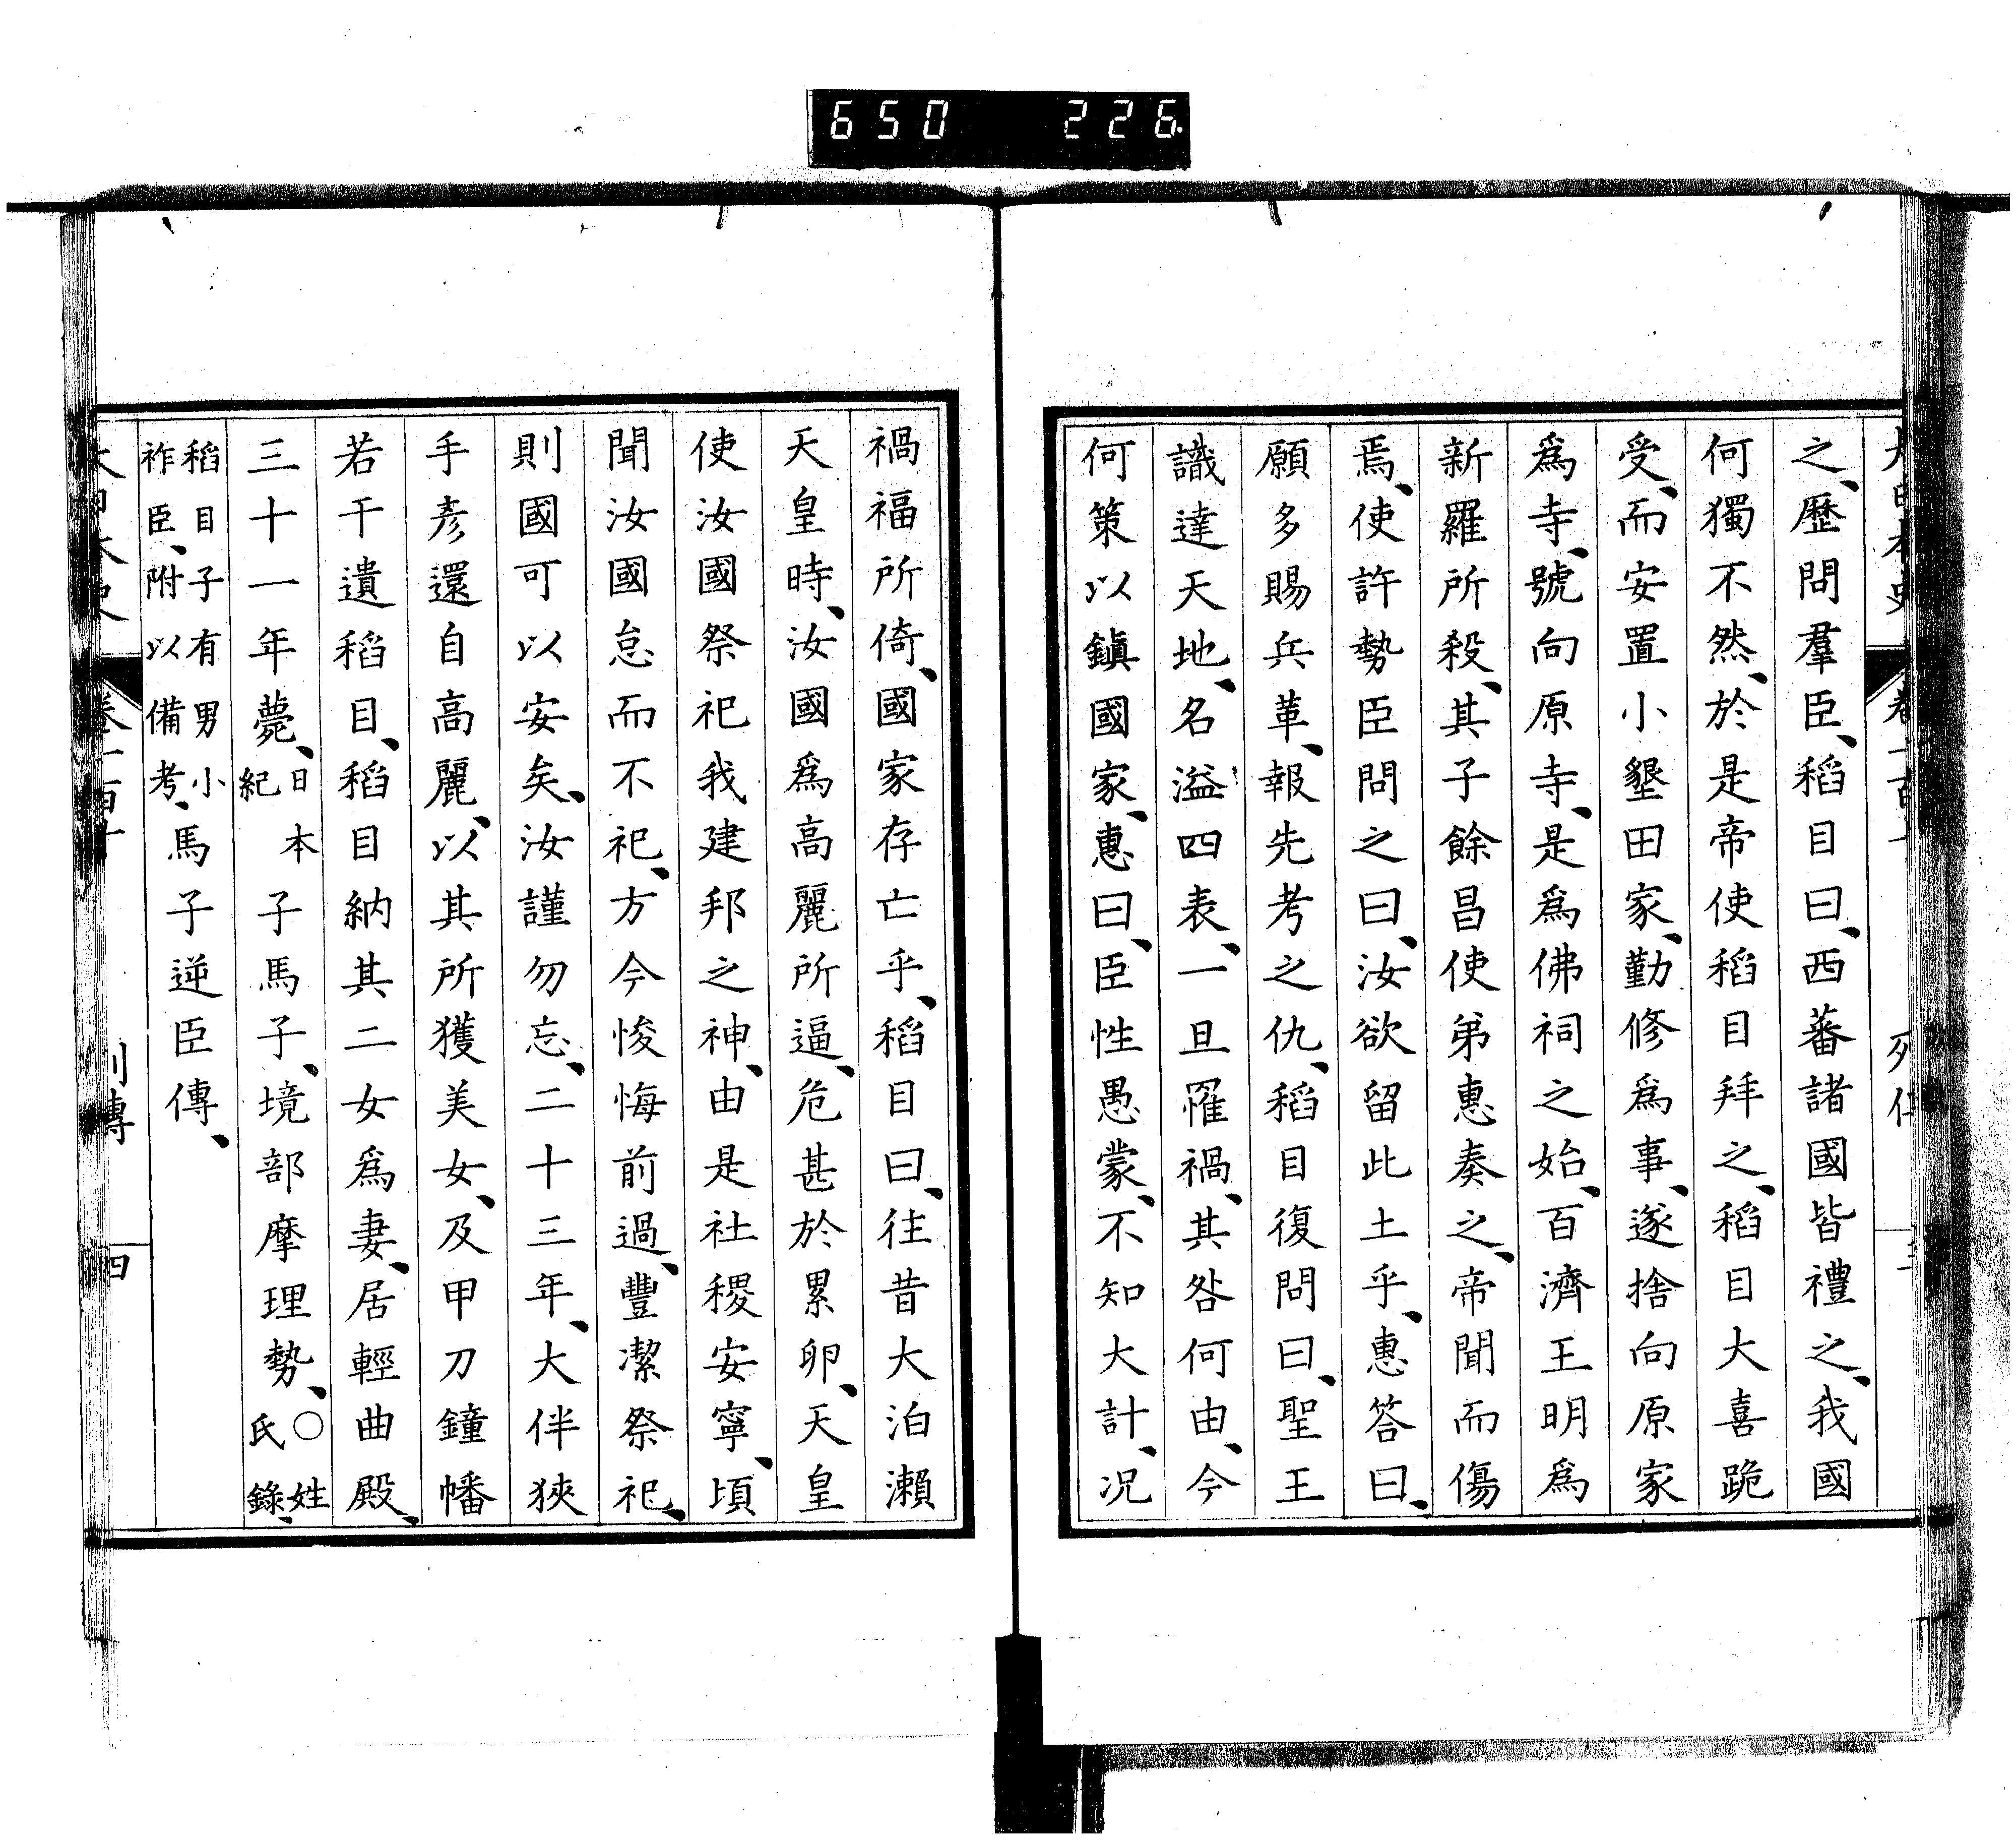 650 226
之、歷問羣臣、稻目曰、西蕃諸國皆禮之、我國
何獨不然、於是帝使稻目拜之、稻目大喜跪
受、而安置小墾田家、勤修爲事、遂捨向原家
爲寺、號向原寺、是爲佛祠之始、百濟王明爲
新羅所殺、其子餘昌使弟惠奏之、帝聞而傷
焉、使許勢臣問之曰、汝欲留此土乎、惠答曰、
願多賜兵革、報先考之仇、稻目復問曰、聖王
識達天地、名溢四表、一旦罹禍、其咎何由、今
何策以鎭國家、惠曰、臣性愚蒙、不知大計、况
禍福所倚、國家存亡乎、稻目曰、往昔大泊瀬
天皇時、汝國爲高麗所逼、危甚於累卵、天皇
使汝國祭祀我建邦之神、由是社稷安寧、頃
聞汝國怠而不祀、方今悛悔前過、豐潔祭祀、
則國可以安矣、汝謹勿忘、二十三年、大伴狹
手彥還自高麗、以其所獲美女、及甲刀鐘幡
若干遺稻目、稻目納其二女爲妻、居輕曲殿、
三十一年薨、日本紀 子馬子、境部摩理勢、○姓氏錄、
稻目子有男小祚臣、附以備考、馬子逆臣傳、
大日本史 卷一百十 列傳 四